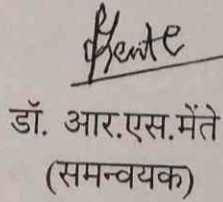 डॉ. आर.एस.मेंते
(समन्वयक)